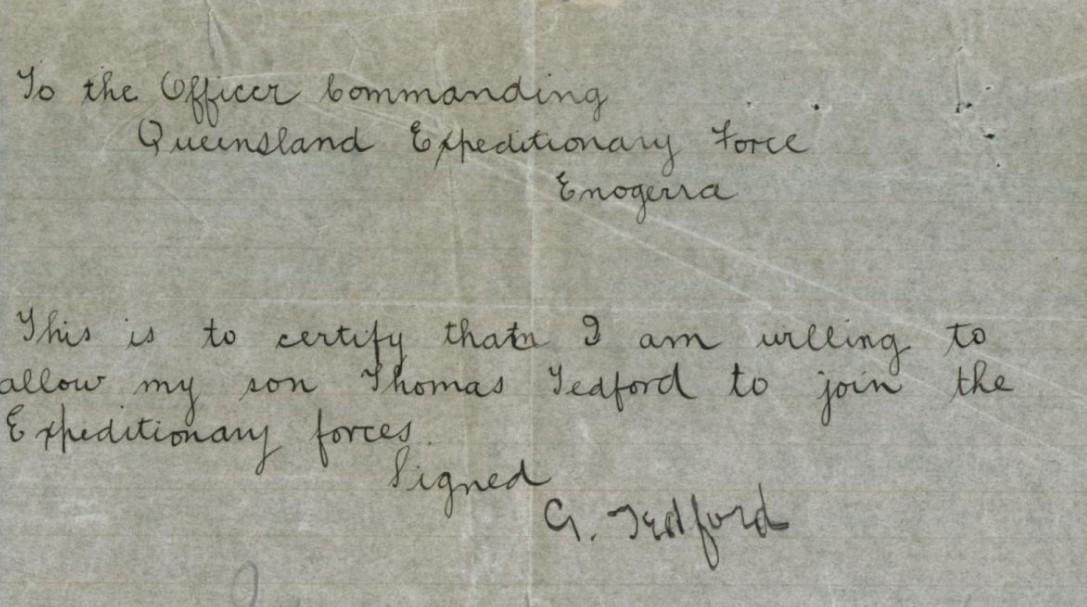 To the Officer Commanding
Queensland Expeditionary Force
Enogerra
This is to certify that I am willing to
allow my son Thomas Tedford to join the
Expeditionary forces.
Signed
G. Tedford